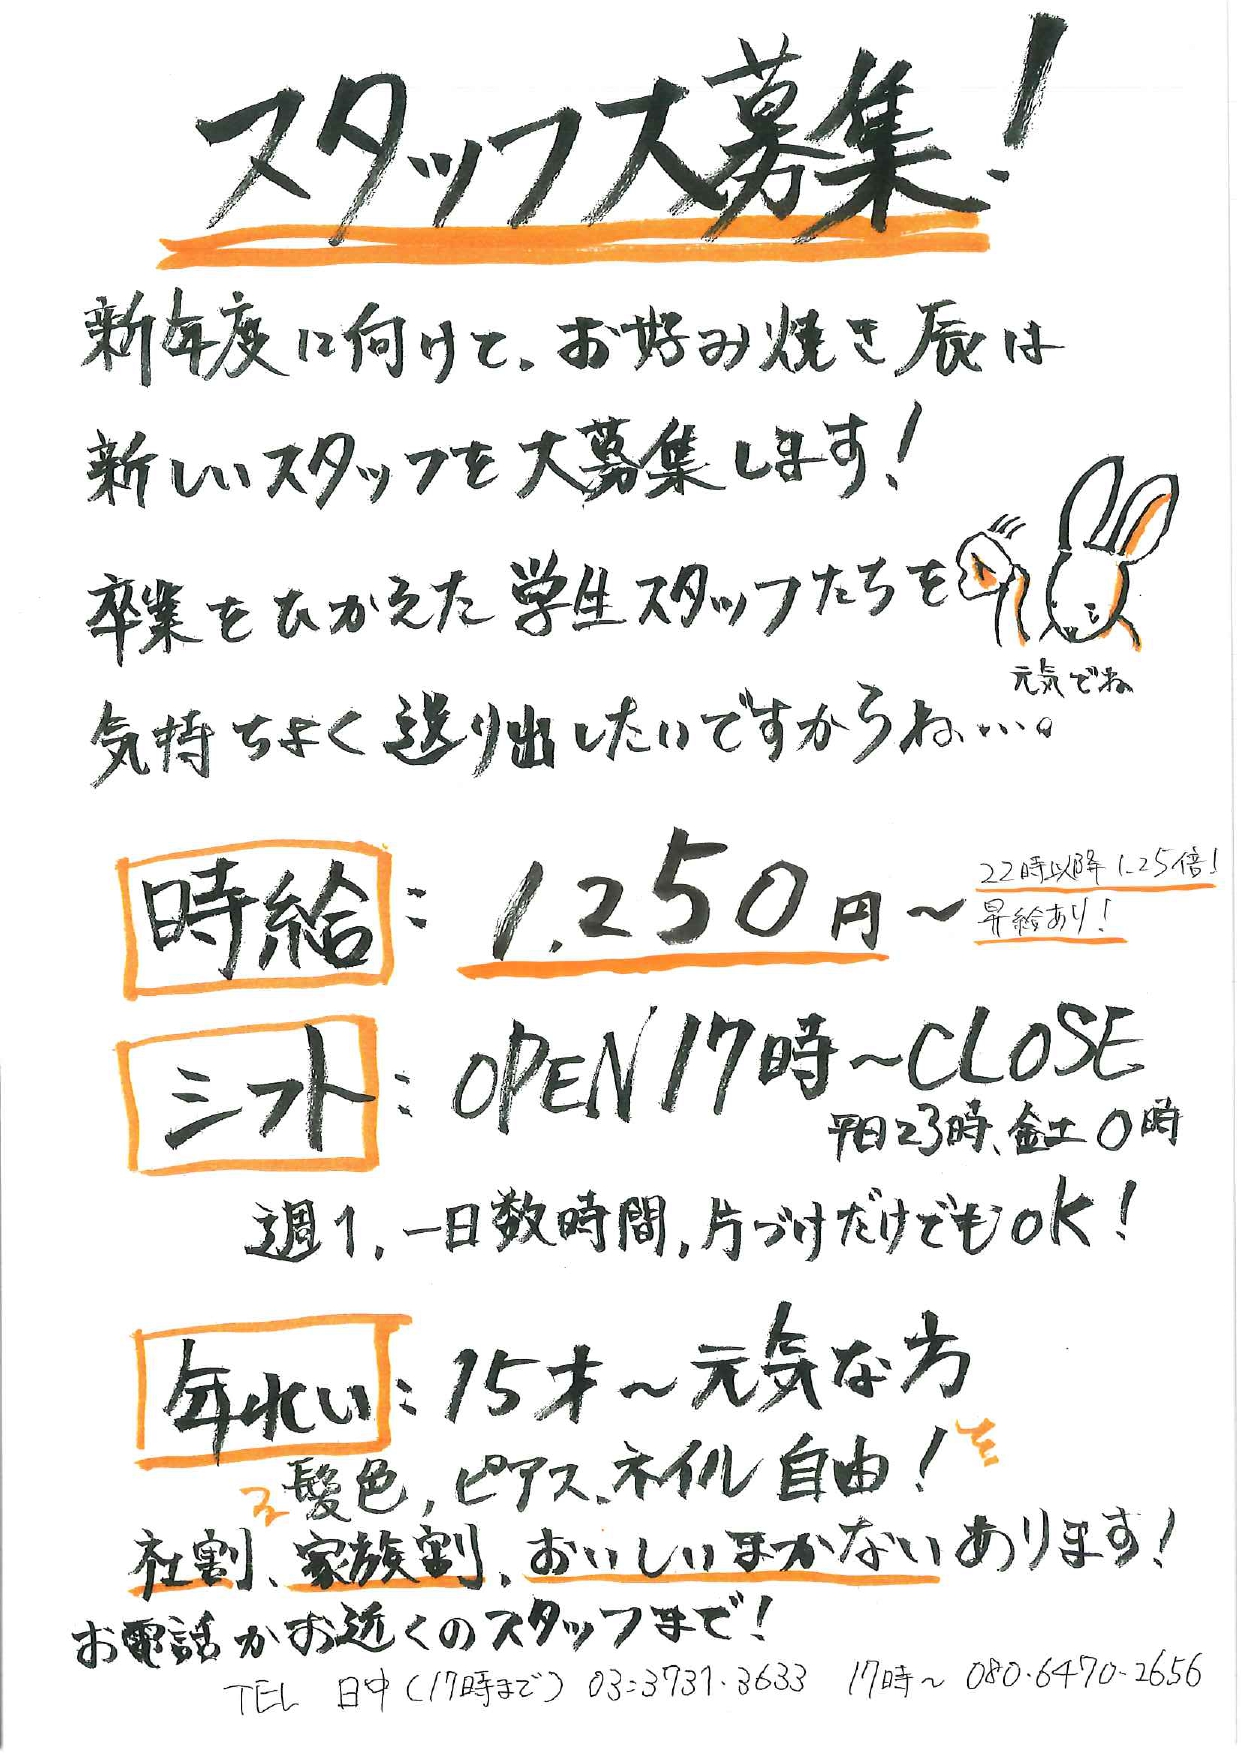 スタッフ大募集!
新年度に向けて、お好み焼き辰は
新しいスタッフを大募集します!
卒業をひかえた学生スタッフたちを
元気でね
気持ちよく送り出したいですからね…。
時給:1,250円〜
22時以降1.25倍!
昇給あり!
シフト:OPEN17時〜CLOSE
平日23時、金土0時
週1、一日数時間、片づけだけでもOK!
年れい:15才〜元気な方
髪色、ピアス、ネイル自由!
社割、家族割、おいしいまかないあります!
お電話かお近くのスタッフまで!
TEL 日中(17時まで) 03:3731・3633 17時〜 080・6470-2656